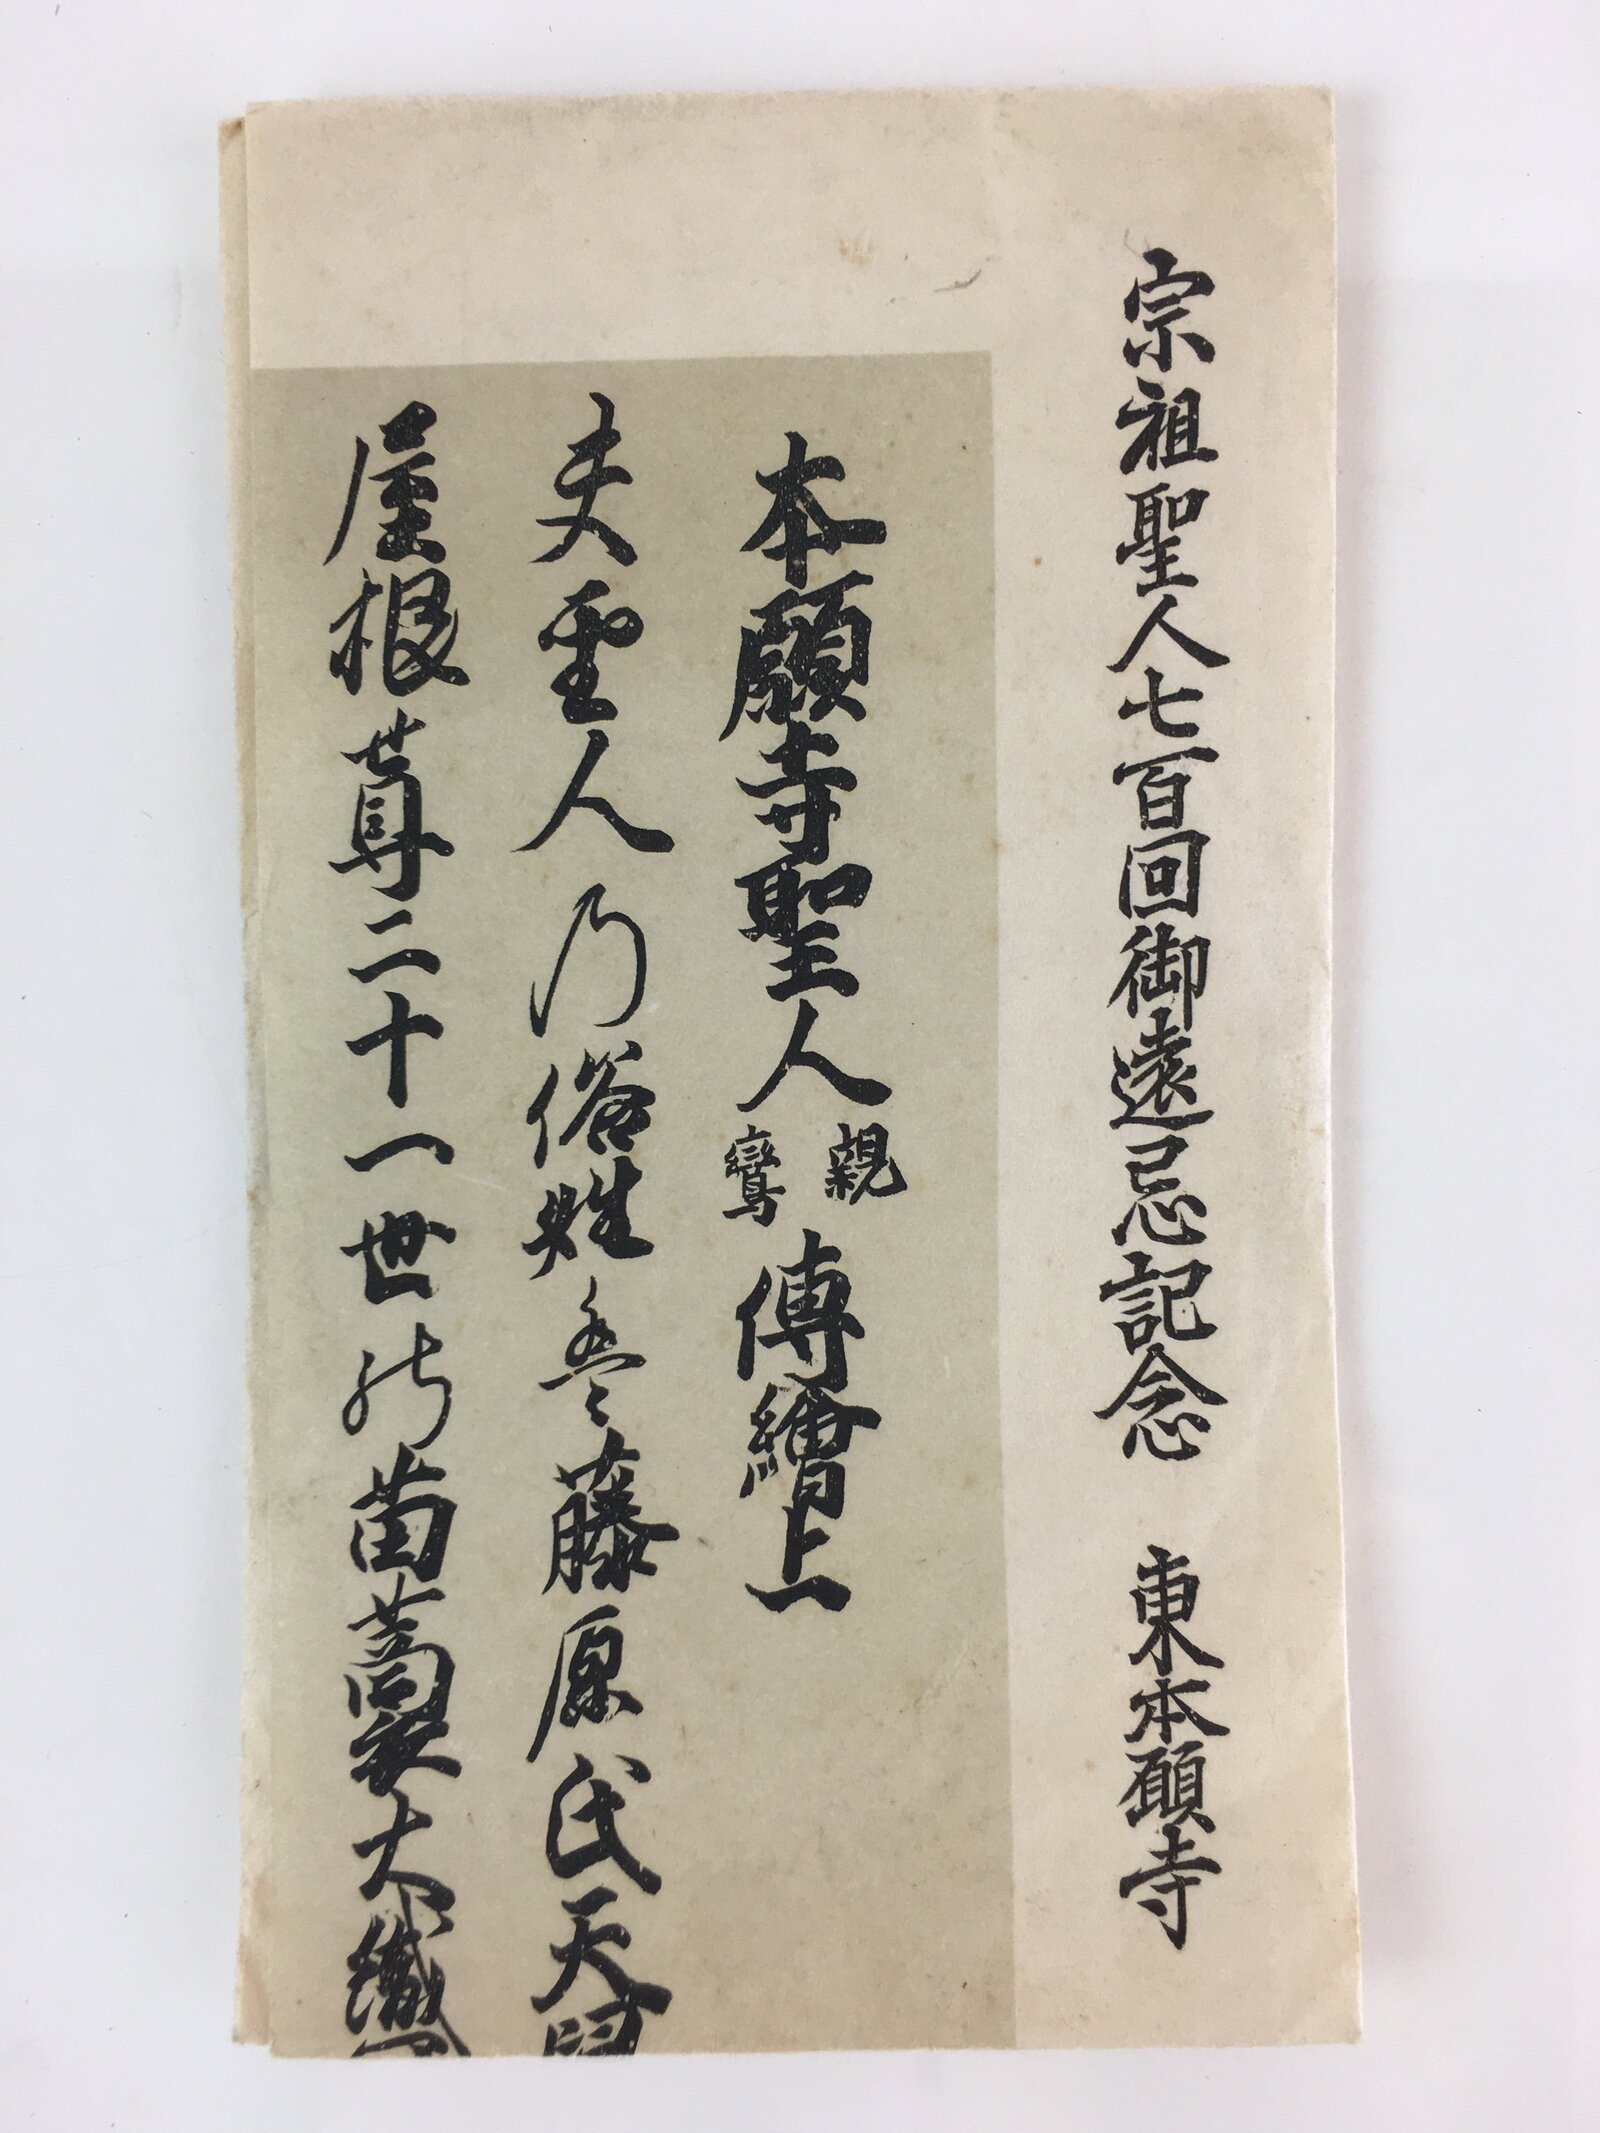 宗祖聖人七百回御遠忌記念 東本願寺
本願寺聖人親鸞傳繪上
夫聖人乃俗姓は藤原氏天
屋根尊二十一世能苗裔大織